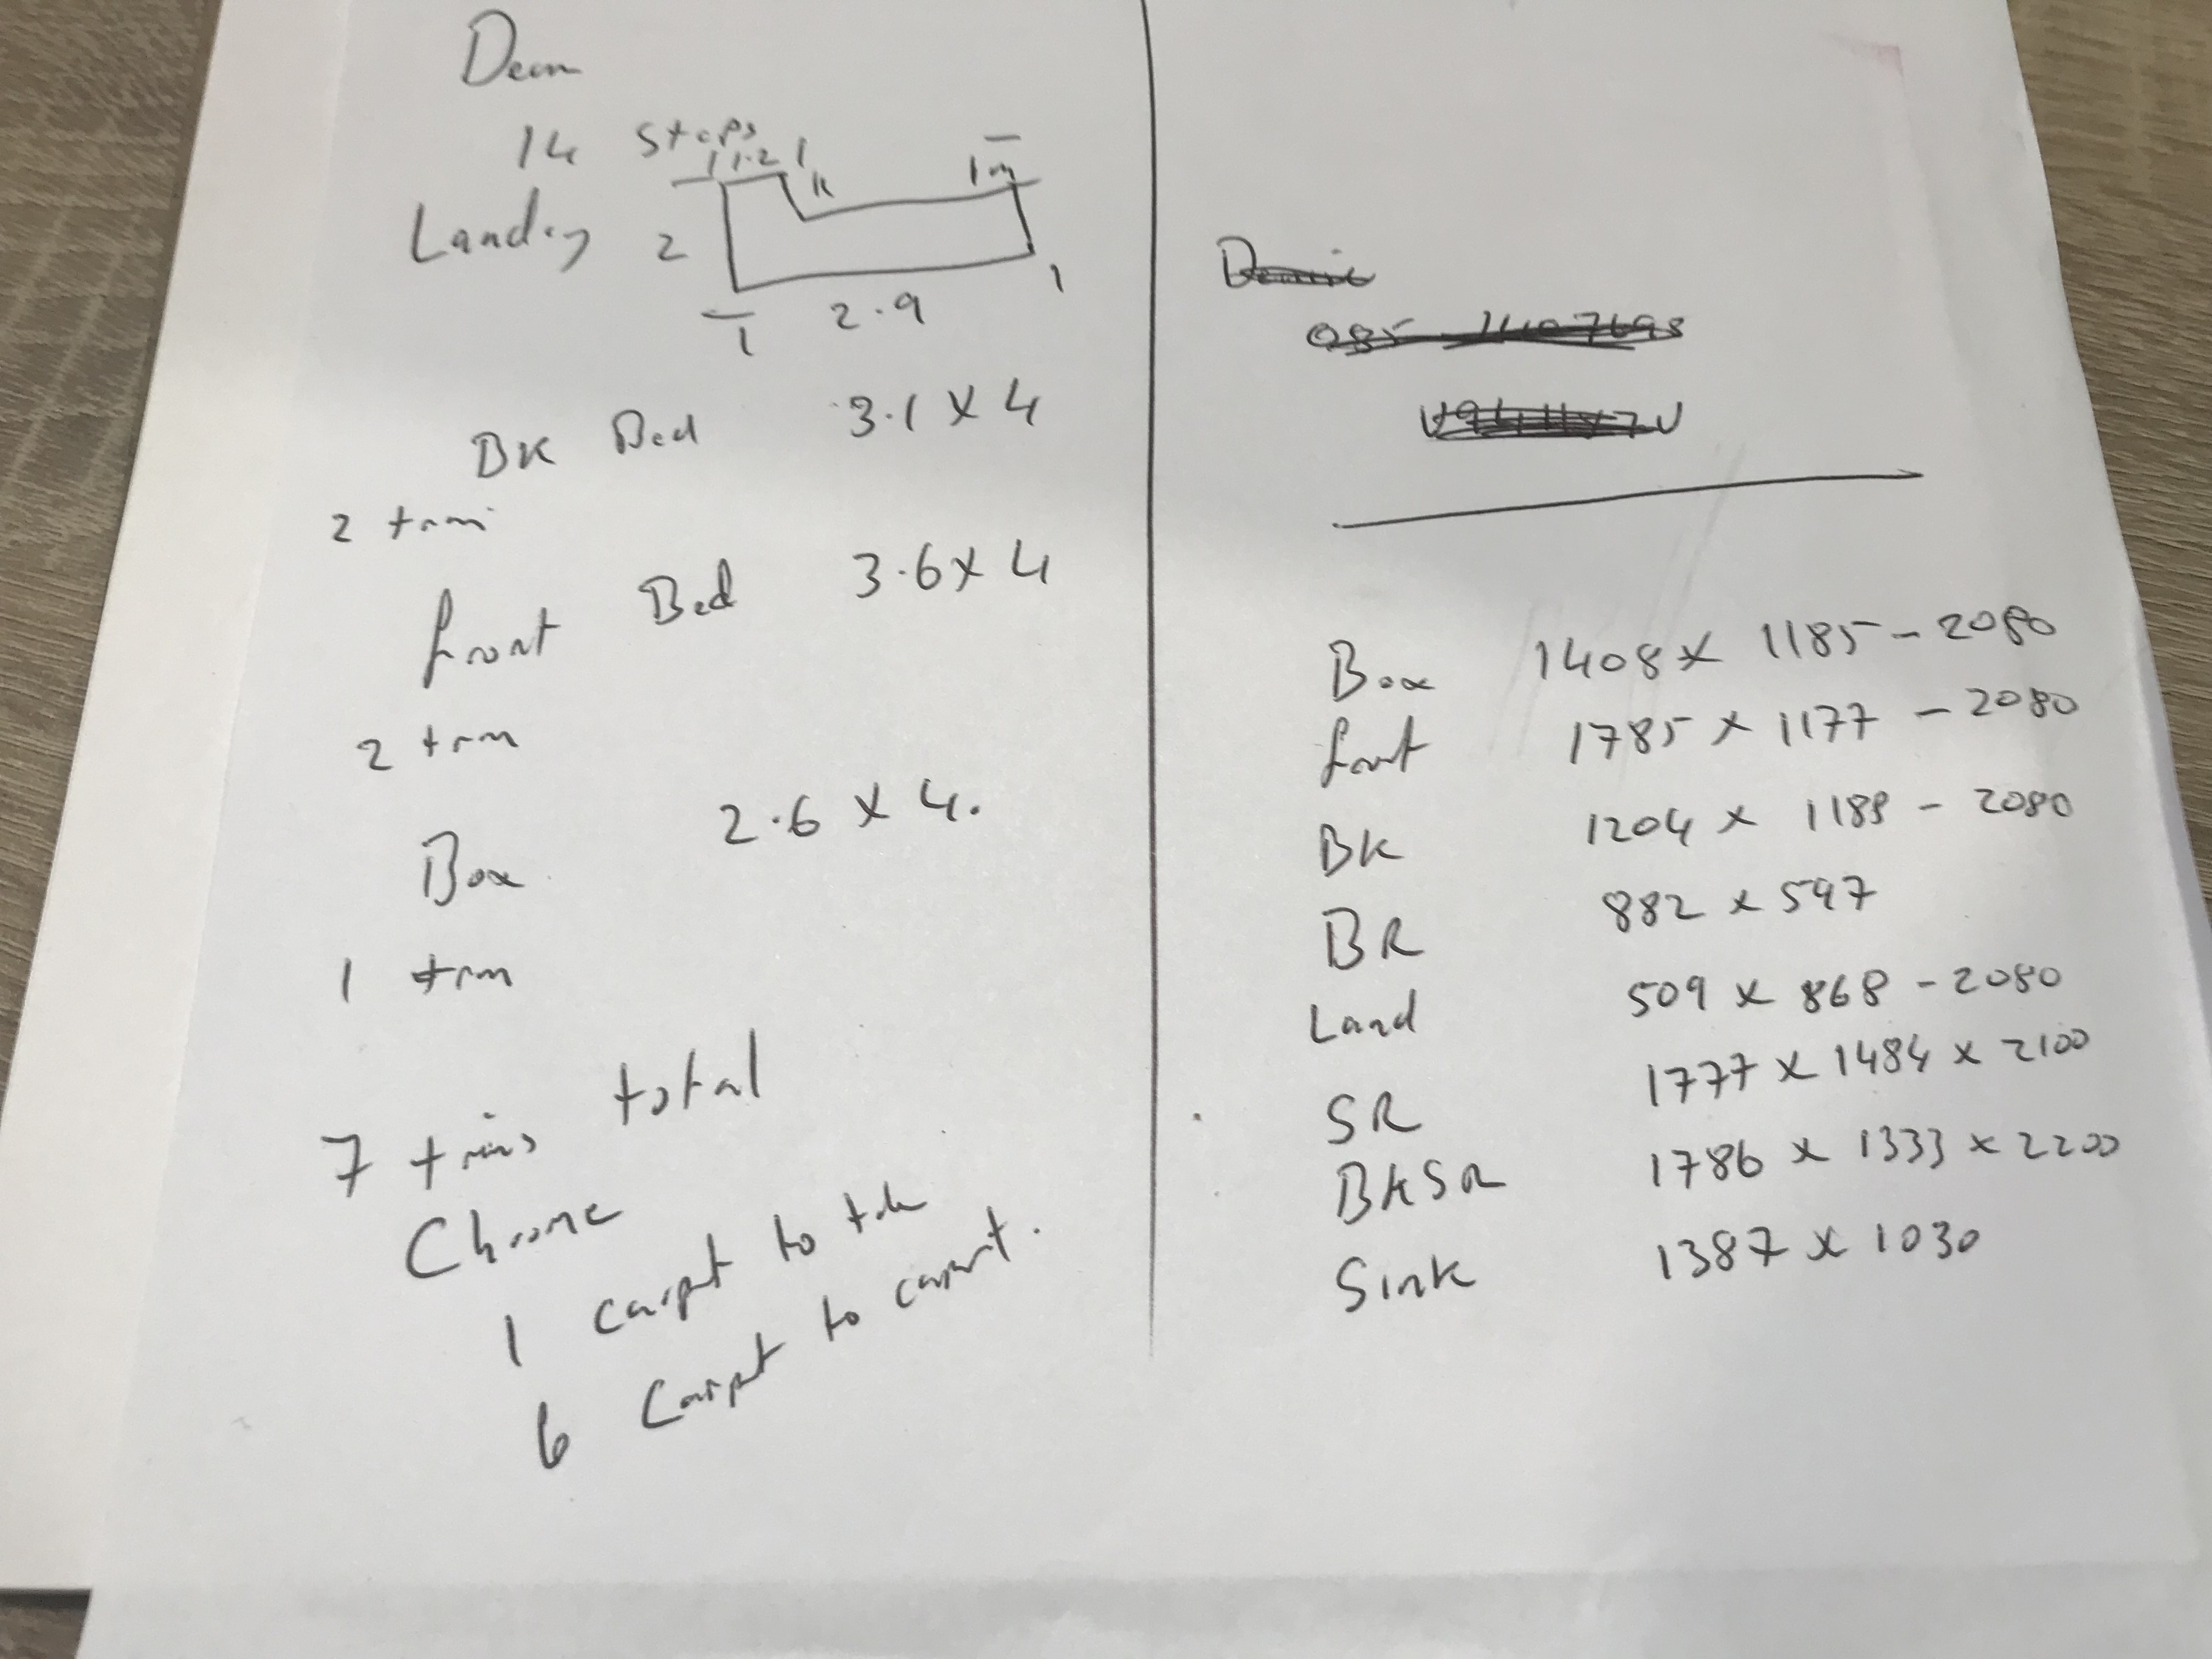 Dean
14 steps
1.2
1m
Landing 2
1
2.9
1
BK Bed 3.1 x 4
2 trim
front Bed 3.6 x 4
2 trim
Box 2.6 x 4.
1 trim
7 trims total
Chrome
1 carpet to tile
6 carpet to carpet.
Box 1408 x 1185 - 2080
front 1785 x 1177 - 2080
BK 1204 x 1188 - 2080
BR 882 x 597
Land 509 x 868 - 2080
SR 1777 x 1484 x 2100
BKSR 1786 x 1333 x 2200
Sink 1387 x 1030